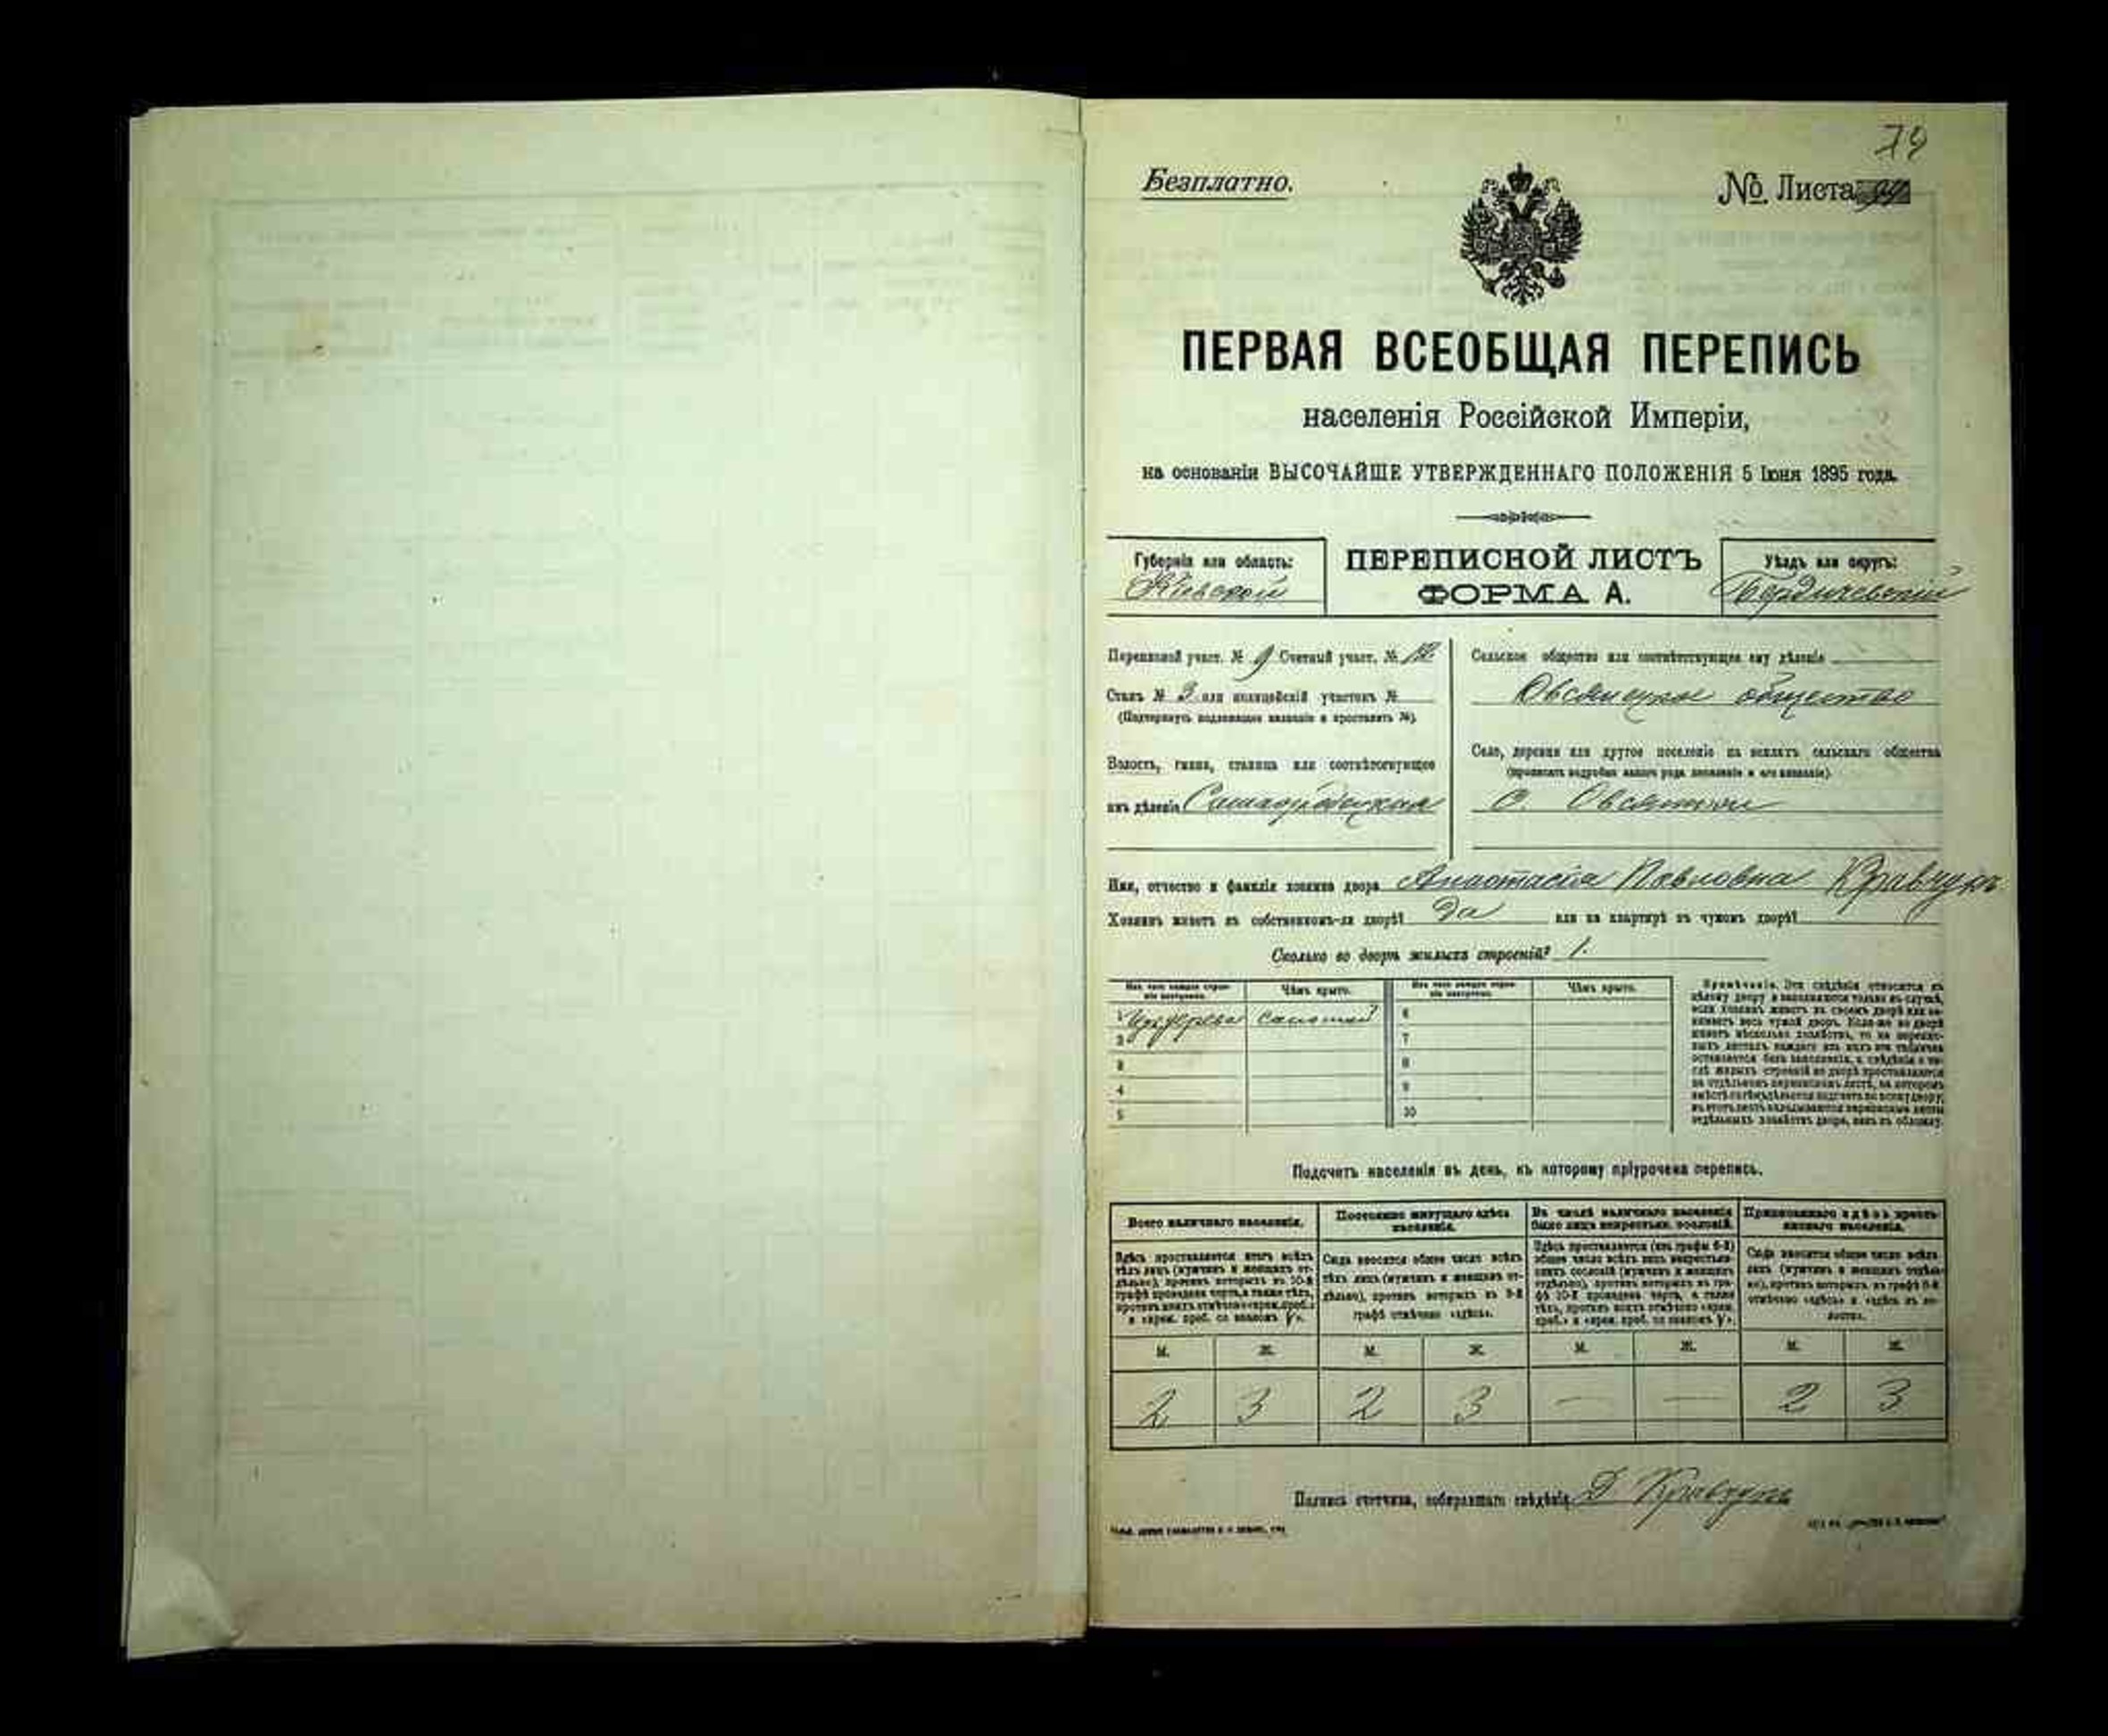 79
Безплатно.
№ Листа
ПЕРВАЯ ВСЕОБЩАЯ ПЕРЕПИСЬ
населенія Россійской Имперіи,
на основаніи ВЫСОЧАЙШЕ УТВЕРЖДЕННАГО ПОЛОЖЕНІЯ 5 Іюня 1895 года.
Губернія или область:
Кіевской
ПЕРЕПИСНОЙ ЛИСТЪ
ФОРМА А.
Уѣздъ или округъ:
Бердичевскій
Переписной участ. № 9 Счетный участ. №
Станъ № 3 или полицейскій участокъ №
(Подчеркнуть подлежащее названіе и проставить №).
Волость, гмина, станица или соотвѣтствующее
имъ дѣленіе
Сельское общество или соотвѣтствующее ему дѣленіе
общество
Село, деревня или другое поселеніе на земляхъ сельскаго общества
(прописать подробно какого рода поселеніе и его названіе).
с.
Имя, отчество и фамилія хозяина двора Анастасія Павловна Кравчукъ
Хозяинъ живетъ въ собственномъ-ли дворѣ? Да или на квартирѣ въ чужомъ дворѣ?
Сколько во дворѣ жилыхъ строеній? 1.
Изъ чего каждое строеніе построено.
Чѣмъ крыто.
Изъ чего каждое строеніе построено.
Чѣмъ крыто.
1 Изъ дерева соломой 6
2 7
3 8
4 9
5 10
Примѣчаніе. Эти свѣдѣнія относятся къ
цѣлому двору и заполняются только въ случаѣ,
если хозяинъ живетъ въ своемъ дворѣ или занимаетъ
весь чужой дворъ. Если-же во дворѣ
живетъ нѣсколько хозяйствъ, то на переписныхъ
листахъ каждаго изъ нихъ эта табличка
остается безъ заполненія, а свѣдѣнія о числѣ
жилыхъ строеній во дворѣ проставляются
на отдѣльномъ переписномъ листѣ, на которомъ
вмѣстѣ съ тѣмъ дѣлается подсчетъ по всему двору;
въ этотъ листъ вкладываются переписные листы
отдѣльныхъ хозяйствъ двора, какъ въ обложку.
Подсчетъ населенія въ день, къ которому пріурочена перепись.
Всего наличнаго населенія.
Постоянно живущаго здѣсь населенія.
Въ числѣ наличнаго населенія было лицъ некрестьян. сословій.
Приписаннаго здѣсь крестьянскаго населенія.
Здѣсь проставляется итогъ всѣхъ
тѣхъ лицъ (мужчинъ и женщинъ отдѣльно),
противъ которыхъ въ 10-й
графѣ проведена черта, а также тѣхъ,
противъ коихъ отмѣчено «врем. преб.»
и «врем. преб. со знакомъ V».
Сюда вносится общее число всѣхъ
тѣхъ лицъ (мужчинъ и женщинъ отдѣльно),
противъ которыхъ въ 9-й
графѣ отмѣчено «здѣсь».
Здѣсь проставляется (изъ графы 6-й)
общее число всѣхъ лицъ некрестьянскихъ
сословій (мужчинъ и женщинъ
отдѣльно), противъ которыхъ въ графѣ
10-й проведена черта, а также
тѣхъ, противъ коихъ отмѣчено «врем.
преб.» и «врем. преб. со знакомъ V».
Сюда вносится общее число всѣхъ
лицъ (мужчинъ и женщинъ отдѣльно),
противъ которыхъ въ графѣ 8-й
отмѣчено «здѣсь» и «здѣсь въ волости».
М. Ж. М. Ж. М. Ж. М. Ж.
2 3 2 3 — — 2 3
Подпись счетчика, собиравшаго свѣдѣнія Д. Кравчукъ